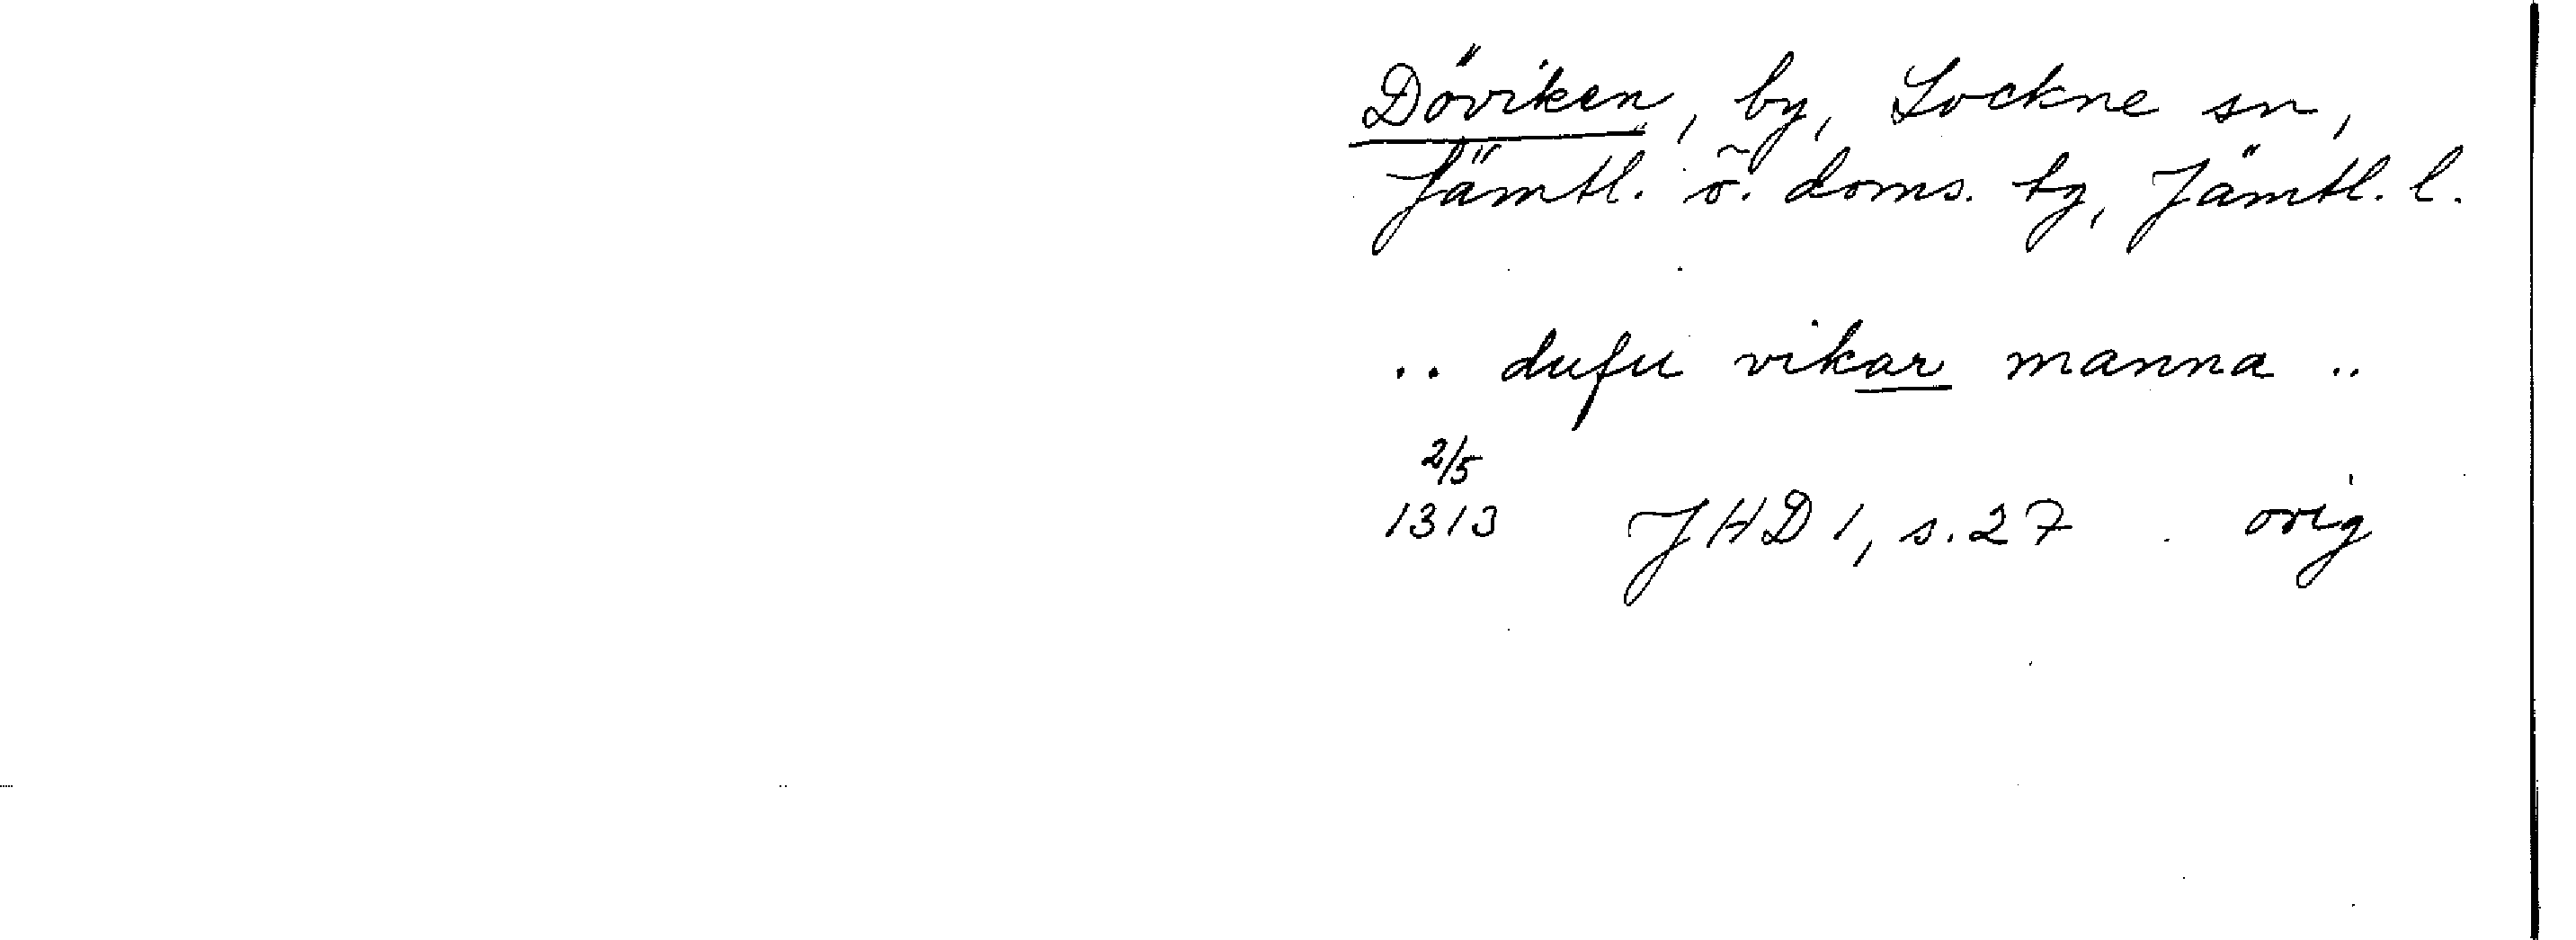 Döviken, by, Lockne sn,
Jämtl. ö. doms. tg, Jämtl. l.
.. dufu vikar manna ..
2/5
1313 JHD 1, s. 27 orig